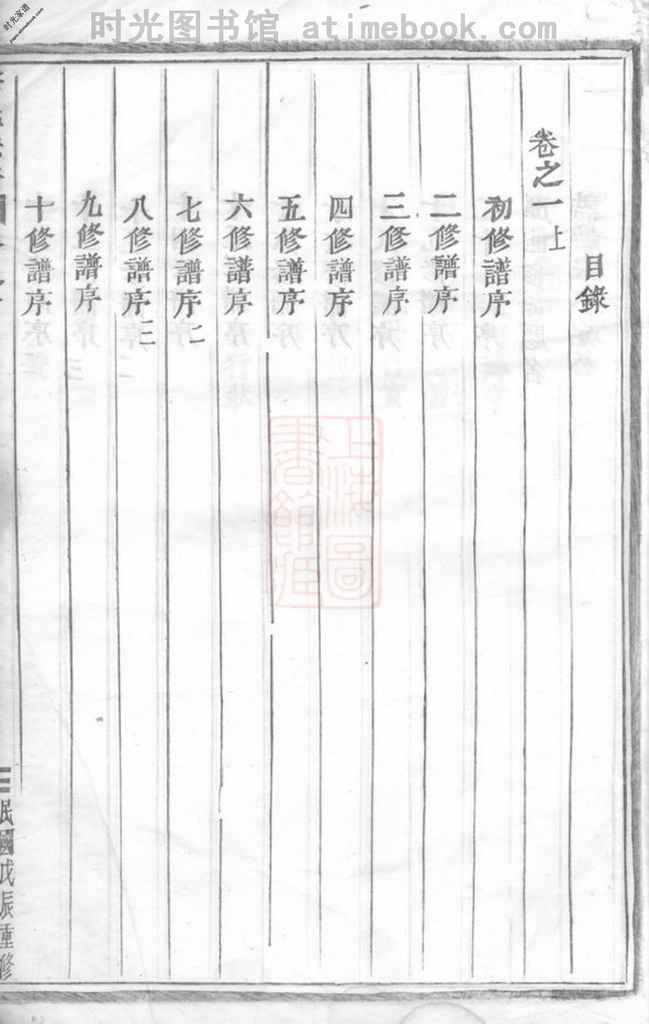 时光图书馆 atimebook.com
时光家谱
www.atimebook.com
目錄
卷之一上
初修譜序
二修譜序
三修譜序
四修譜序
五修譜序
六修譜序
七修譜序二
八修譜序三
九修譜序
十修譜序
民國戊辰重修
上海圖
書館藏